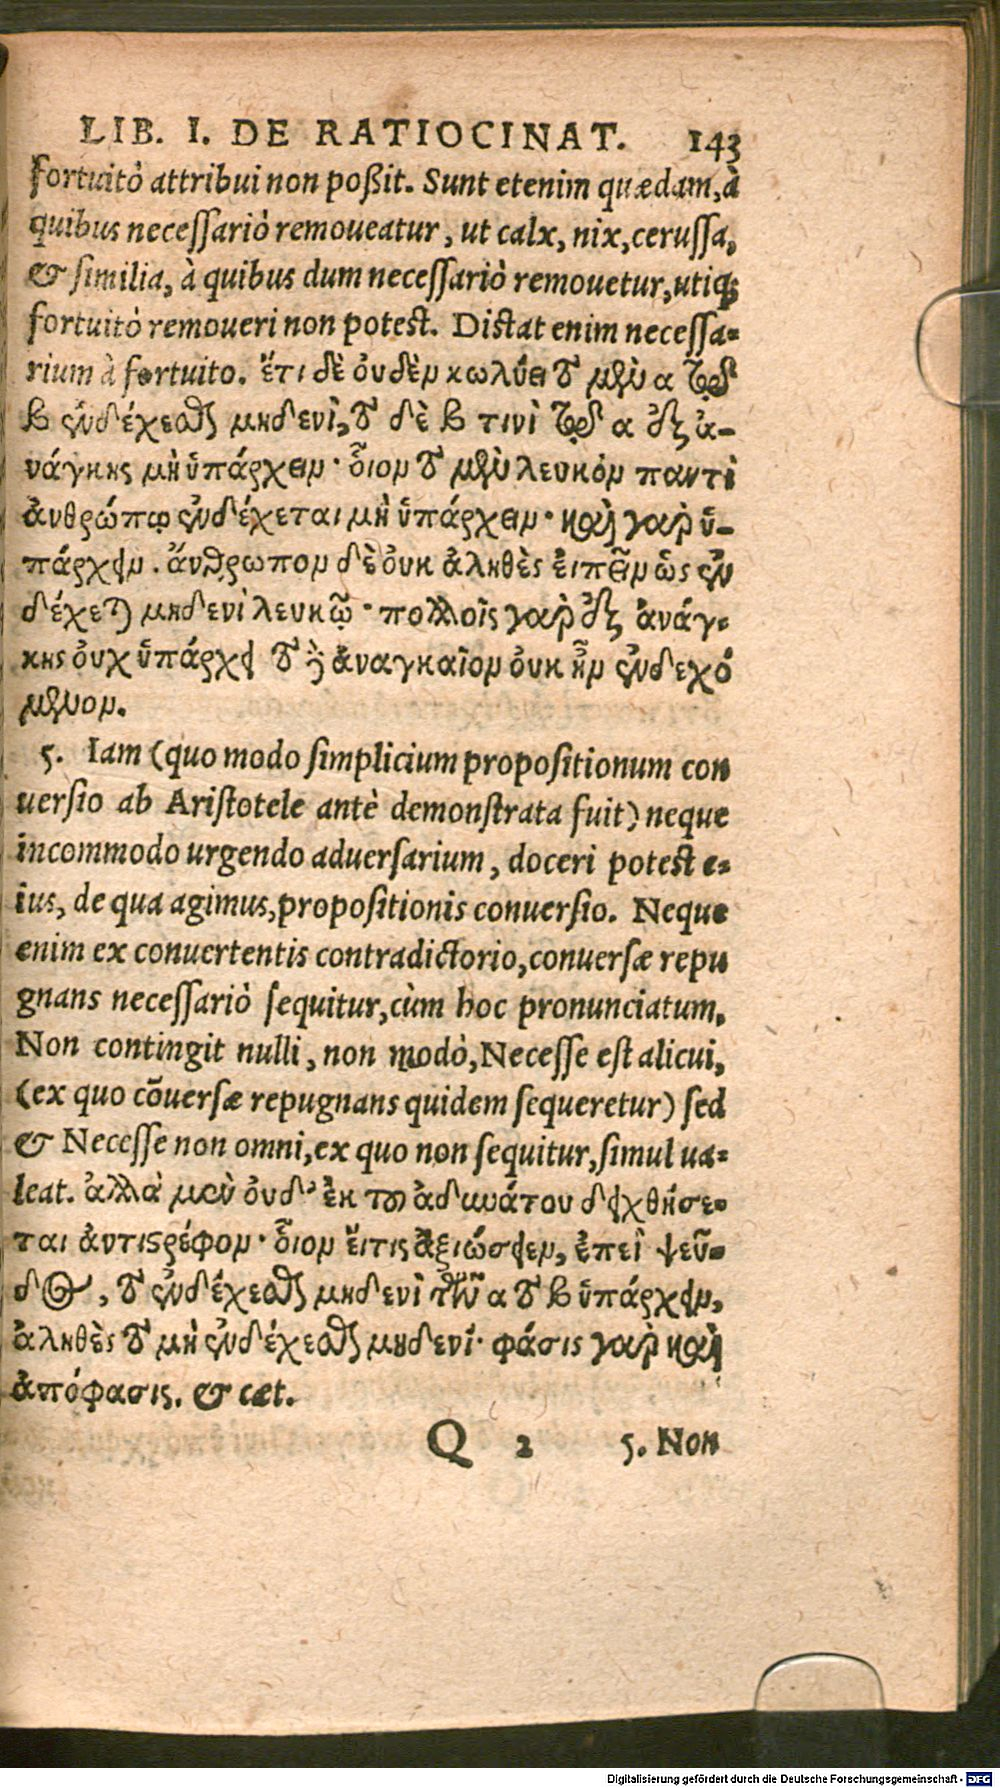 LIB. I. DE RATIOCINAT. 143
fortuitò attribui non poßit. Sunt etenim quædam, à
quibus necessariò remoueatur, ut calx, nix, cerussa,
& similia, à quibus dum necessariò remouetur, utiq;
fortuitò remoueri non potest. Distat enim necessa-
rium à fortuito. ἔτι δὲ ὀυδὲν κωλύει τὸ μὲν α τῷ
β ἐνδέχεσθαι μηδενὶ, τὸ δὲ β τινὶ τῷ α ἐξ ἀ-
νάγκης μὴ ὑπάρχειν· ὅιον τὸ μὲν λευκὸν παντὶ
ἀνθρώπῳ ἐνδέχεται μὴ ὑπάρχειν· καὶ γαρ ὑ-
πάρχειν. ἄνθρωπον δὲ ὀυκ ἀληθὲς ἐιπεῖν ὡς ἐν
δέχεται μηδενὶ λευκῷ· πολλοῖς γαρ ἐξ ἀνάγ-
κης ὀυχ ὑπάρχει τὸ δὲ ἀναγκαῖον ὀυκ ἦν ἐνδεχό
μενον.
5. Iam (quo modo simplicium propositionum con
uersio ab Aristotele antè demonstrata fuit) neque
incommodo urgendo aduersarium, doceri potest e-
ius, de qua agimus, propositionis conuersio. Neque
enim ex conuertentis contradictorio, conuersæ repu
gnans necessariò sequitur, cùm hoc pronunciatum,
Non contingit nulli, non modò, Necesse est alicui,
(ex quo cōuersæ repugnans quidem sequeretur) sed
& Necesse non omni, ex quo non sequitur, simul ua-
leat. ἀλλὰ μὴν ὀυδ' ἐκ τοῦ ἀδυνάτου δειχθήσε-
ται ἀντιστρέφον· ὅιον ἔιτις ἀξιώσειεν, ἐπεὶ ψεῦ-
δος, τὸ ἐνδέχεσθαι μηδενὶ τῶν α τὸ β ὑπάρχειν,
ἀληθὲς τὸ μὴ ἐνδέχεσθαι μηδενί· φάσις γαρ καὶ
ἀπόφασις. & cæt.
Q 2 5. Non
Digitalisierung gefördert durch die Deutsche Forschungsgemeinschaft - DFG